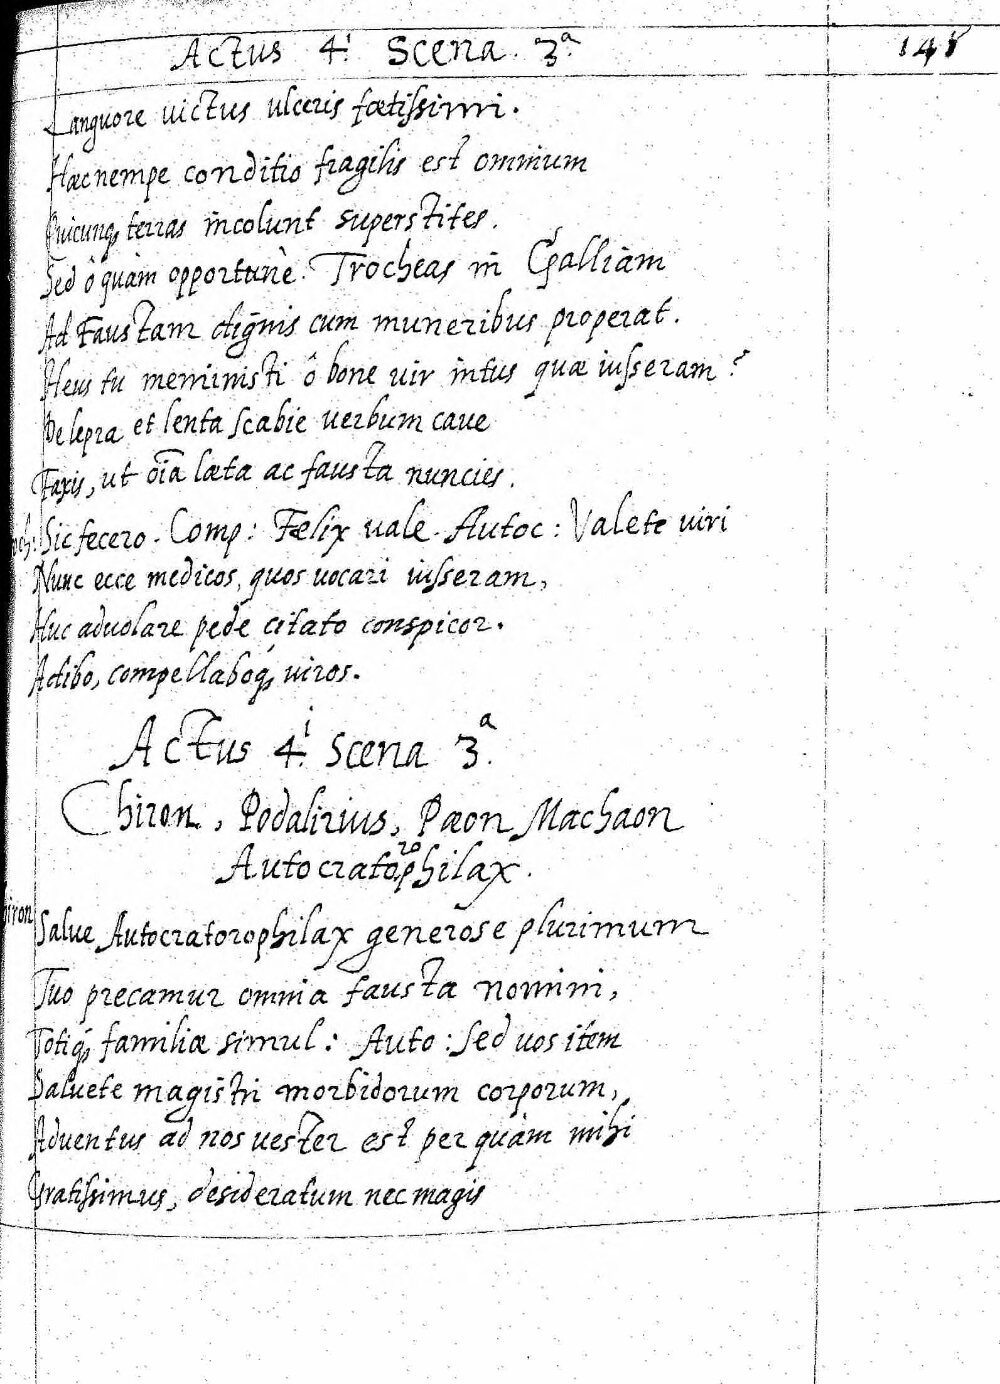 Actus 4.i Scena. 3.a
Languore uictus ulceris fœtissimi.
Hæc nempe conditio fragilis est omnium
Quicunq; terras incolunt superstites.
Sed ô quàm opportunè. Trocheas in Galliam
Ad Faustam dignis cum muneribus properat.
Heus tu meministi ô bone uir intus quæ iusseram?
De lepra et lenta scabie uerbum caue
Faxis, ut oīa læta ac fausta nuncies.
Sic fecero. Comp: Fœlix uale. Autoc: Valete uiri
Nunc ecce medicos, quos uocari iusseram,
Huc aduolare pede citato conspicor.
Adibo, compellaboq; uiros.
Actus 4.i Scena 3.a
Chiron, Podalirius, Pæon Machaon
Autocratorophilax.
Salue Autocratorophilax generose plurimum
Tuo precamur omnia fausta nomini,
Totiq; familiæ simul: Auto: Sed uos item
Saluete magistri morbidorum corporum,
Aduentus ad nos uester est per quàm mihi
Gratissimus, desideratum nec magis